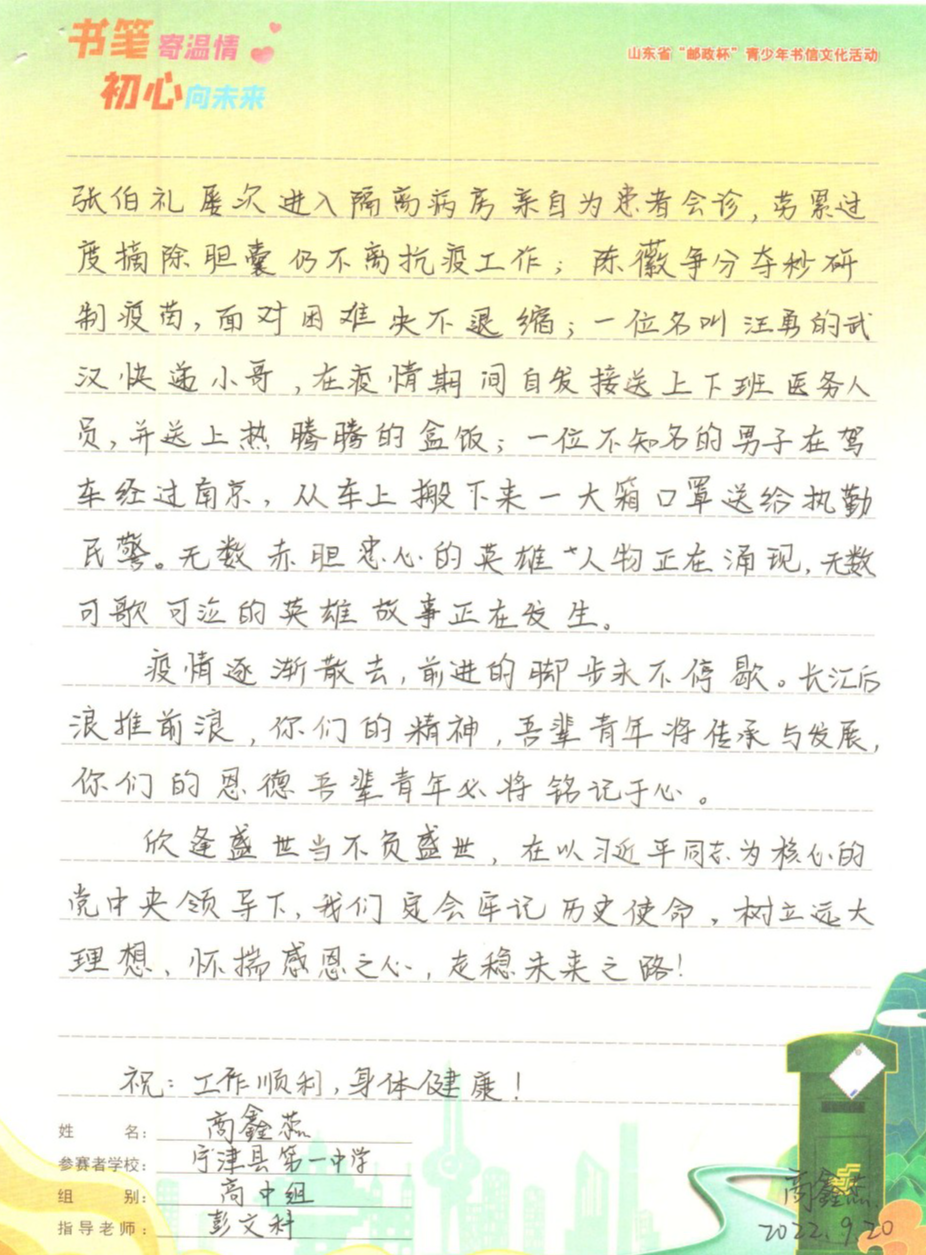 书笔寄温情
初心向未来
山东省“邮政杯”青少年书信文化活动
张伯礼屡次进入隔离病房亲自为患者会诊，劳累过
度摘除胆囊仍不离抗疫工作；陈薇争分夺秒研
制疫苗，面对困难决不退缩；一位名叫汪勇的武
汉快递小哥，在疫情期间自发接送上下班医务人
员，并送上热腾腾的盒饭；一位不知名的男子在驾
车经过南京，从车上搬下来一大箱口罩送给执勤
民警。无数赤胆忠心的英雄人物正在涌现，无数
可歌可泣的英雄故事正在发生。
疫情逐渐散去，前进的脚步永不停歇。长江后
浪推前浪，你们的精神，吾辈青年将传承与发展，
你们的恩德吾辈青年必将铭记于心。
欣逢盛世当不负盛世，在以习近平同志为核心的
党中央领导下，我们定会牢记历史使命，树立远大
理想、怀揣感恩之心，走稳未来之路！
祝：工作顺利，身体健康！
姓 名：高鑫蕊
参赛者学校：宁津县第一中学
组 别：高中组
指导老师：彭文科
高鑫蕊
2022.9.20